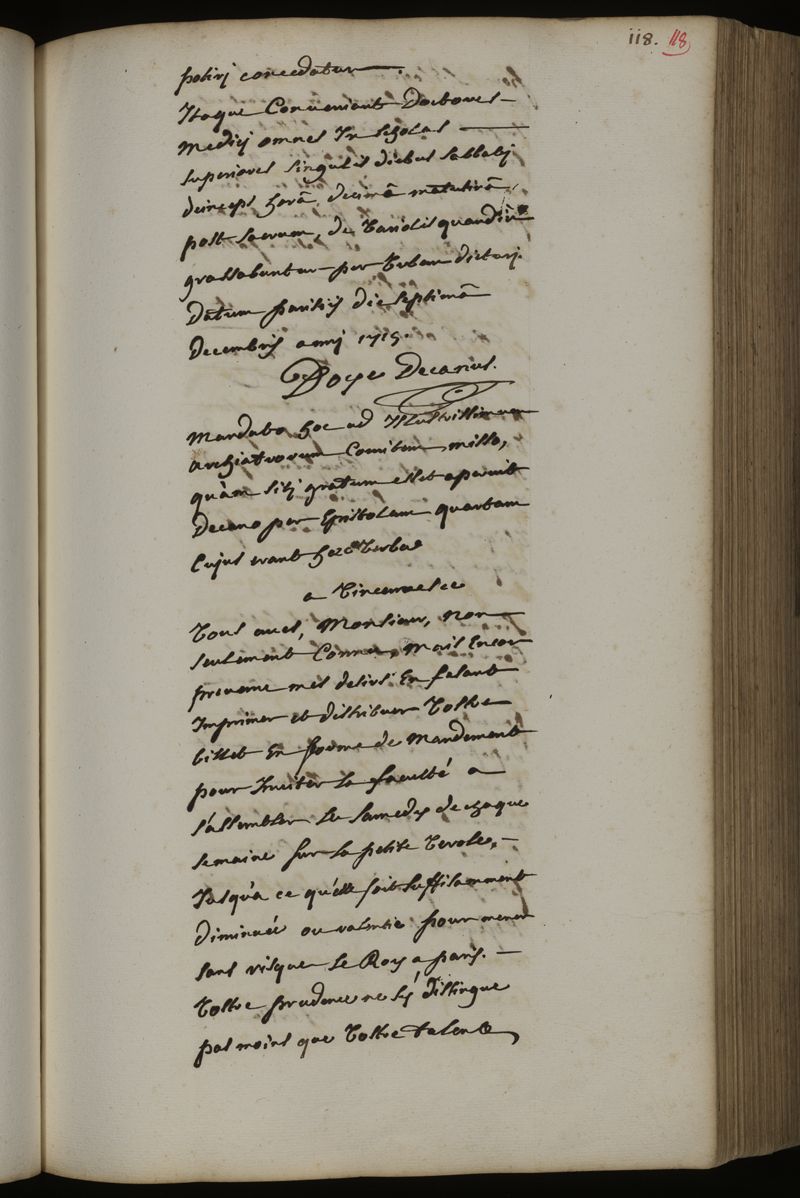 118. 118
potirj concedatur.
Itaque Conveniant Doctores
medicj omnes In scholas
superiores singulis diebus sabbatj
deinceps horâ decimâ matutinâ,
post sacrum, de Variolis quandiu
grassabuntur per Urbem dicturj.
Datum parisijs die septimâ
decembris annj 1715.
Doye Decanus.
mandato hoc ad Illustrissimum
archiatrorum Comitem misso,
quàm sibj gratum esset aperuit
Decano per Epistolam quartam
Cujus erant haec Verba
a Vincennes ce
Vous aves, Monsieur, non
seulement Connu, mais Encor
prevenu mes desirs En fesant
Imprimer et distribuer Vostre
billet En forme de Mandement
pour Inviter la faculté a
s'assembler Le samedy de chaque
semaine sur la petite Verole,
Jusqu'a ce qu'elle soit suffisamment
diminuée ou ralentie pour mener
sans risque Le Roy a paris.
Vostre prudence ne s'y distingue
pas moins que Vostre talent